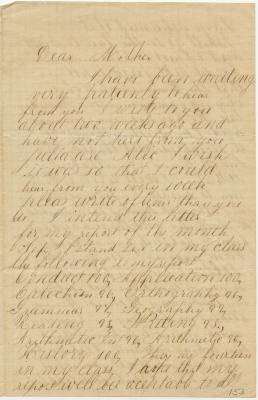 Dear Mother
I have been waiting
very patiently to hear
from you I wrote to you
about two weeks ago and
have not hird from you
I wish
it was so that I could
hear from you every week
pleas write ofener than you
do, I intend this letter
for my report of the month
I stand in my class
the following is my report
Conduct 100, Application 100,
Catechism 90, Orthography 90,
Grammar 97, Geography 99,
Reading 95, Writing 95,
Arithmetic
History 100, fourteen
in my class, I that my
report will be to all
152